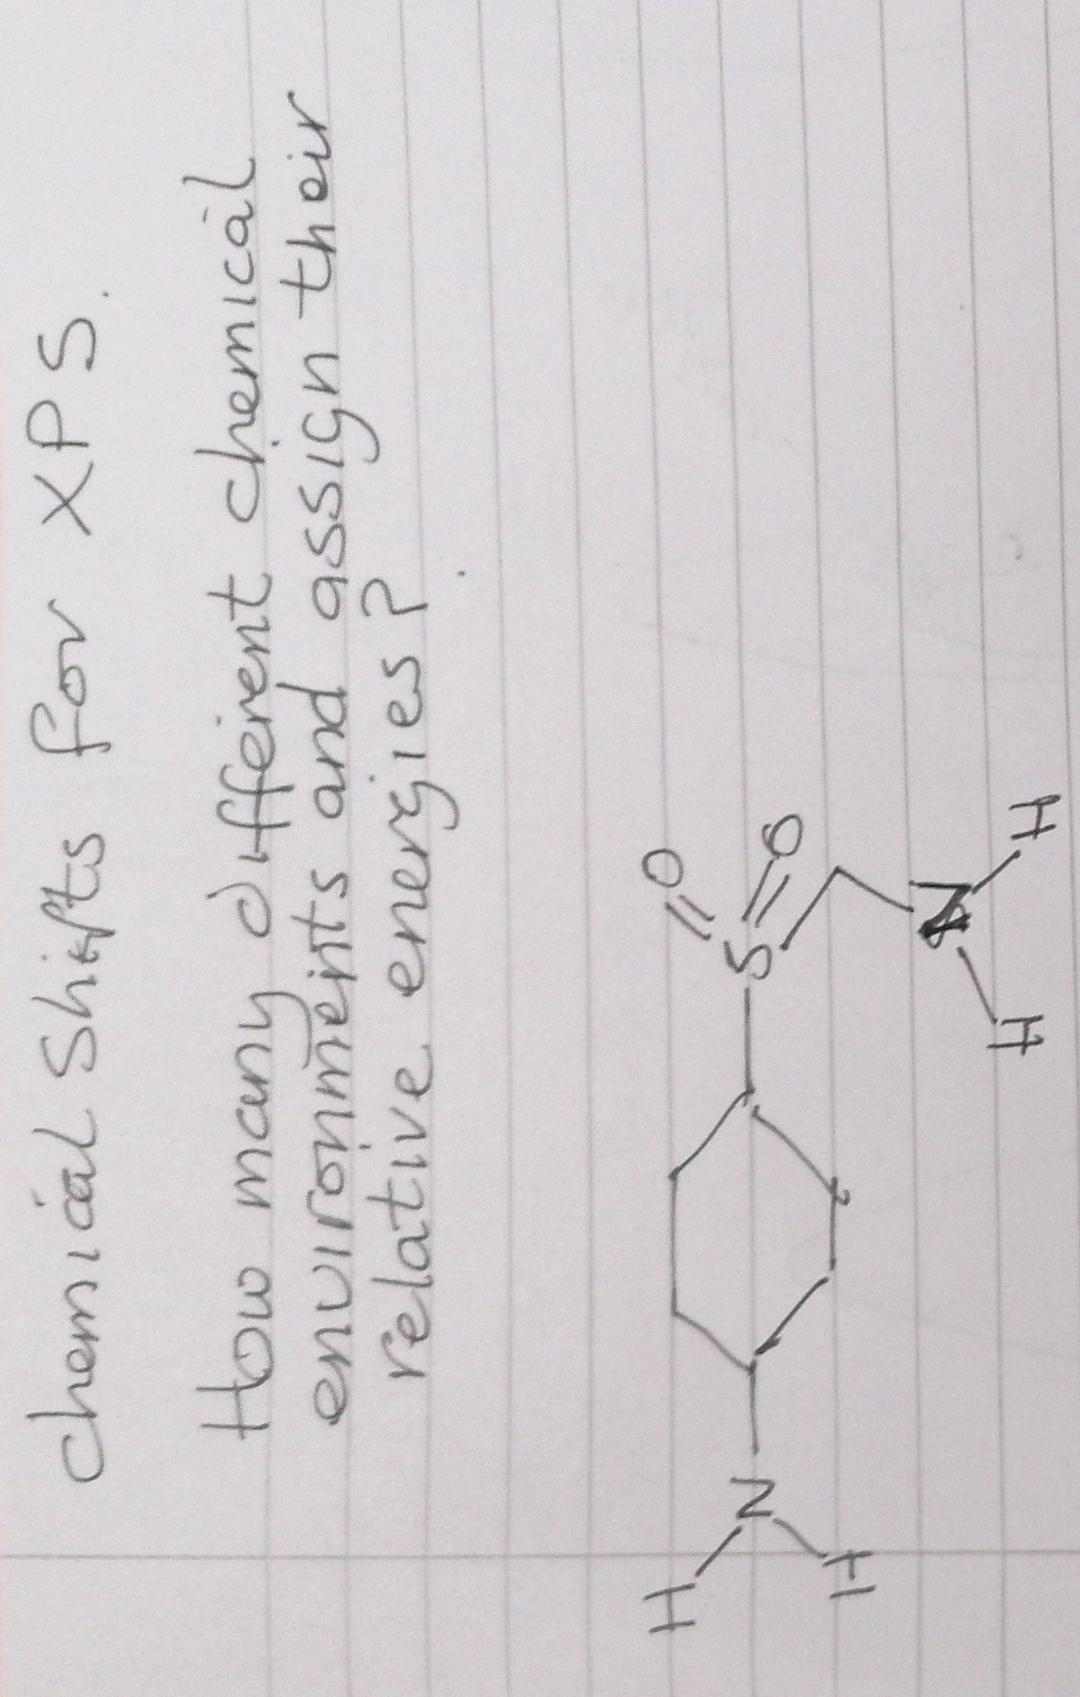 Chemical Shifts for XPS.
How many different chemical
environments and assign their
relative energies?
O
H
N
S
O
H
N
H
H